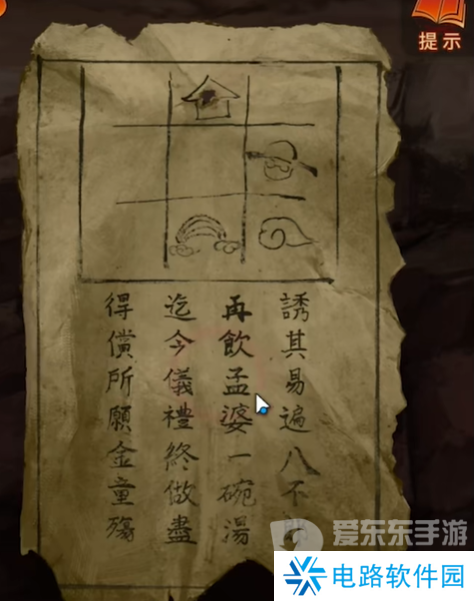 提示
誘其易遍八不
再飲孟婆一碗湯
迄今儀禮終做盡
得償所願金童殤
爱东东手游
电路软件园